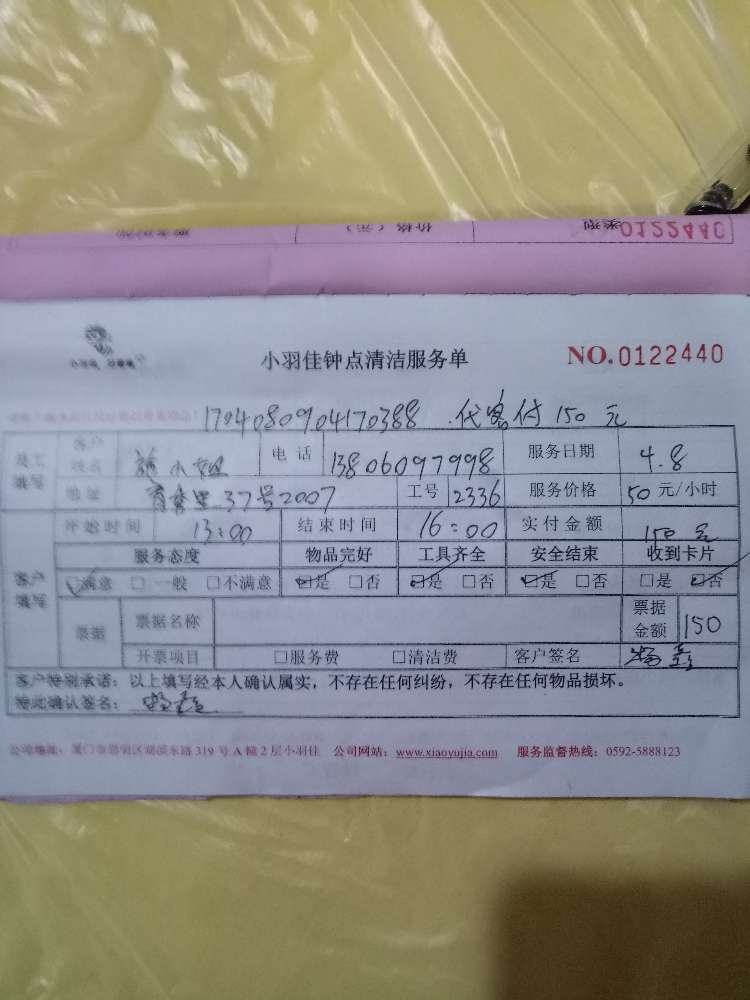 价格(元) 类型 0122440
小羽佳钟点清洁服务单 NO. 0122440
1704080904170388 . 代客付 150 元
员工填写 客户姓名 施小姐 电话 13806097998 服务日期 4.8
地址 37号2007 工号 2336 服务价格 50 元/小时
开始时间 13:00 结束时间 16:00 实付金额 150 元
客户填写 服务态度 物品完好 工具齐全 安全结束 收到卡片
☑满意 □一般 □不满意 ☑是 □否 ☑是 □否 ☑是 □否 □是 ☑否
票据 票据名称 票据金额 150
开票项目 □服务费 □清洁费 客户签名
客户特别承诺：以上填写经本人确认属实，不存在任何纠纷，不存在任何物品损坏。
特此确认签名：
公司地址：厦门市思明区湖滨东路 319 号 A 幢 2 层小羽佳 公司网站：www.xiaoyujia.com 服务监督热线：0592-5888123